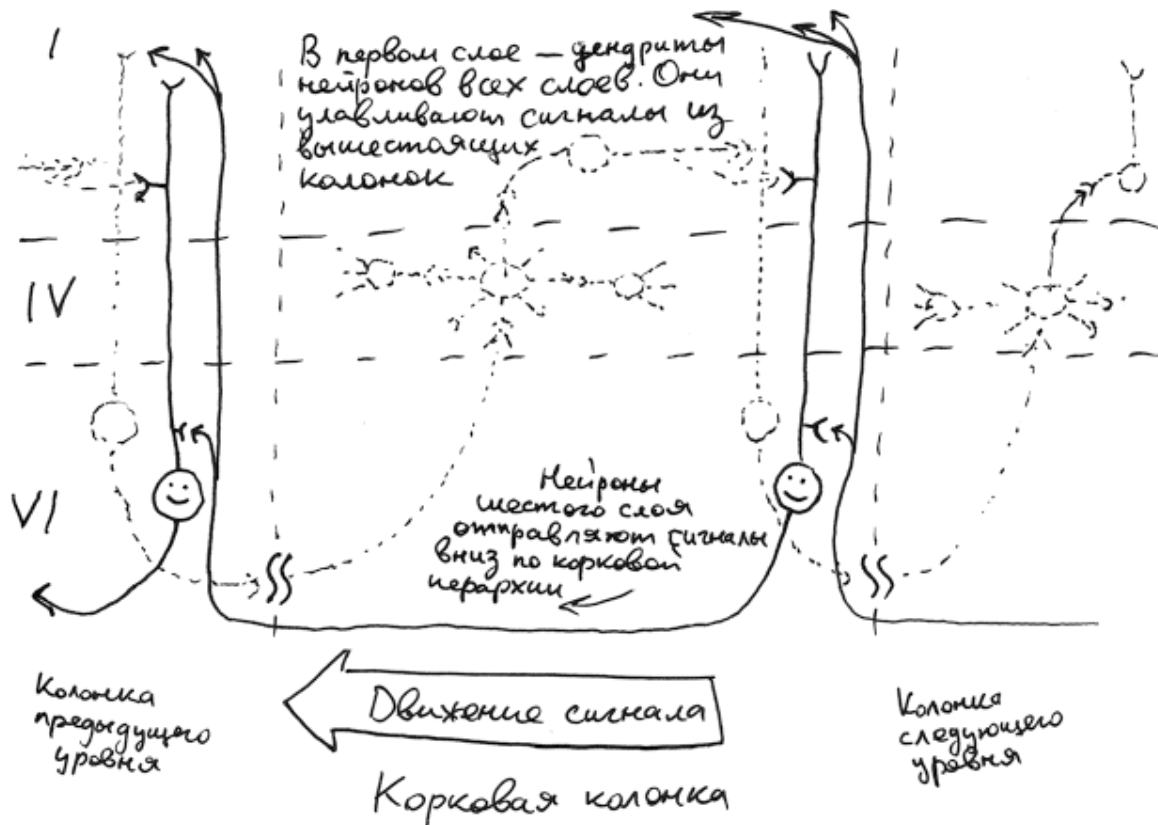 I
В первом слое — дендриты
нейронов всех слоев. Они
улавливают сигналы из
вышестоящих
колонок
IV
VI
Нейроны
шестого слоя
отправляют сигналы
вниз по корковой
иерархии
Колонка
предыдущего
уровня
Движение сигнала
Корковая колонка
Колонка
следующего
уровня